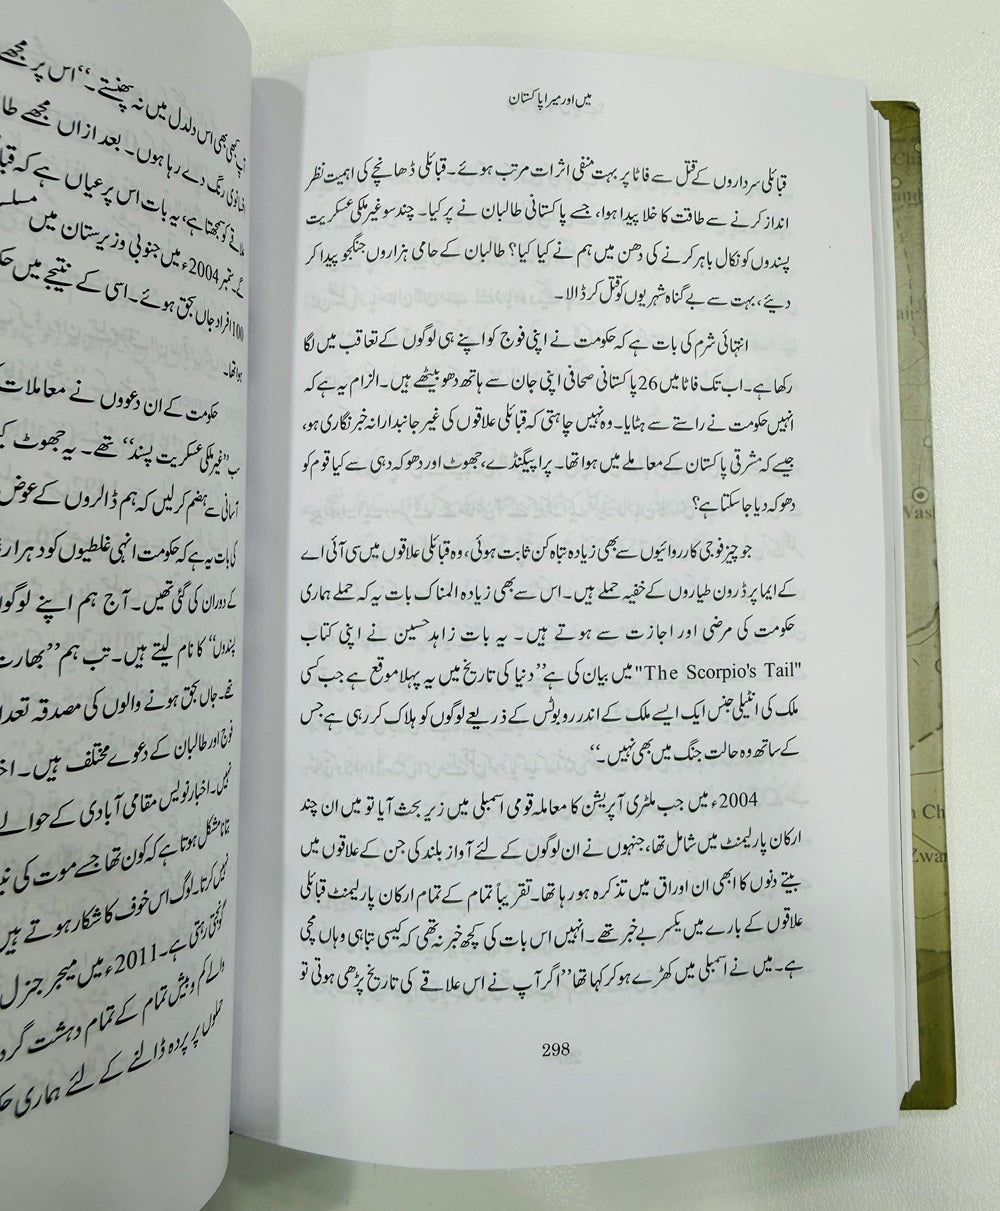 میں اور میرا پاکستان
قبائلی سرداروں کے قتل سے فاٹا پر بہت منفی اثرات مرتب ہوئے۔ قبائلی ڈھانچے کی اہمیت نظر
انداز کرنے سے طاقت کا خلا پیدا ہوا، جسے پاکستانی طالبان نے پر کیا۔ چند سو غیر ملکی عسکریت
پسندوں کو نکال باہر کرنے کی دھن میں ہم نے کیا کیا؟ طالبان کے حامی ہزاروں جنگجو پیدا کر
دیئے، بہت سے بے گناہ شہریوں کو قتل کر ڈالا۔
انتہائی شرم کی بات ہے کہ حکومت نے اپنی فوج کو اپنے ہی لوگوں کے تعاقب میں لگا
رکھا ہے۔ اب تک فاٹا میں 26 پاکستانی صحافی اپنی جان سے ہاتھ دھو بیٹھے ہیں۔ الزام یہ ہے کہ
انہیں حکومت نے راستے سے ہٹایا۔ وہ نہیں چاہتی کہ قبائلی علاقوں کی غیر جانبدارانہ خبر نگاری ہو،
جیسے کہ مشرقی پاکستان کے معاملے میں ہوا تھا۔ پراپیگنڈے، جھوٹ اور دھوکہ دہی سے کیا قوم کو
دھوکہ دیا جا سکتا ہے؟
جو چیز فوجی کارروائیوں سے بھی زیادہ تباہ کن ثابت ہوئی، وہ قبائلی علاقوں میں سی آئی اے
کے ایما پر ڈرون طیاروں کے خفیہ حملے ہیں۔ اس سے بھی زیادہ المناک بات یہ کہ حملے ہماری
حکومت کی مرضی اور اجازت سے ہوتے ہیں۔ یہ بات زاہد حسین نے اپنی کتاب
"The Scorpio's Tail" میں بیان کی ہے ”دنیا کی تاریخ میں یہ پہلا موقع ہے جب کسی
ملک کی انٹیلی جنس ایک ایسے ملک کے اندر روبوٹس کے ذریعے لوگوں کو ہلاک کر رہی ہے جس
کے ساتھ وہ حالت جنگ میں بھی نہیں۔“
2004ء میں جب ملٹری آپریشن کا معاملہ قومی اسمبلی میں زیر بحث آیا تو میں ان چند
ارکان پارلیمنٹ میں شامل تھا، جنہوں نے ان لوگوں کے لئے آواز بلند کی جن کے علاقوں میں
بیتے دنوں کا ابھی ان اوراق میں تذکرہ ہو رہا تھا۔ تقریباً تمام کے تمام ارکان پارلیمنٹ قبائلی
علاقوں کے بارے میں یکسر بے خبر تھے۔ انہیں اس بات کی کچھ خبر نہ تھی کہ کیسی تباہی وہاں مچی
ہے۔ میں نے اسمبلی میں کھڑے ہو کر کہا تھا ”اگر آپ نے اس علاقے کی تاریخ پڑھی ہوتی تو
298
بھی اس دلدل میں نہ پھنستے۔“ اس پر مجھے
رنگ دے رہا ہوں۔ بعد ازاں مجھے
سمجھتا ہے، یہ بات اس پر عیاں ہے کہ
ستمبر 2004ء میں جنوبی وزیرستان میں
100 افراد جاں بحق ہوئے۔ اسی کے نتیجے میں
ہوا تھا۔
حکومت کے ان دعووں نے معاملات
”غیر ملکی عسکریت پسند“ تھے۔ یہ جھوٹ
آسانی سے ہضم کر لیں کہ ہم ڈالروں کے عوض
کی بات یہ ہے کہ حکومت انہی غلطیوں کو دہرا
کے دوران کی گئی تھیں۔ آج ہم اپنے
پسندوں“ کا نام لیتے ہیں۔ تب ہم ”بھارت
تھے۔ جاں بحق ہونے والوں کی مصدقہ
فوج اور طالبان کے دعوے مختلف ہیں۔
نہیں۔ اخبار نویس مقامی آبادی کے حوالے
بتانا مشکل ہوتا ہے کہ کون تھا جسے موت کی
نہیں کرتا۔ لوگ اس خوف کا شکار ہوتے ہیں
رہتی ہے۔ 2011ء میں میجر جنرل
والے کم و بیش تمام کے تمام دہشت گرد
حملوں پر پردہ ڈالنے کے لئے ہماری